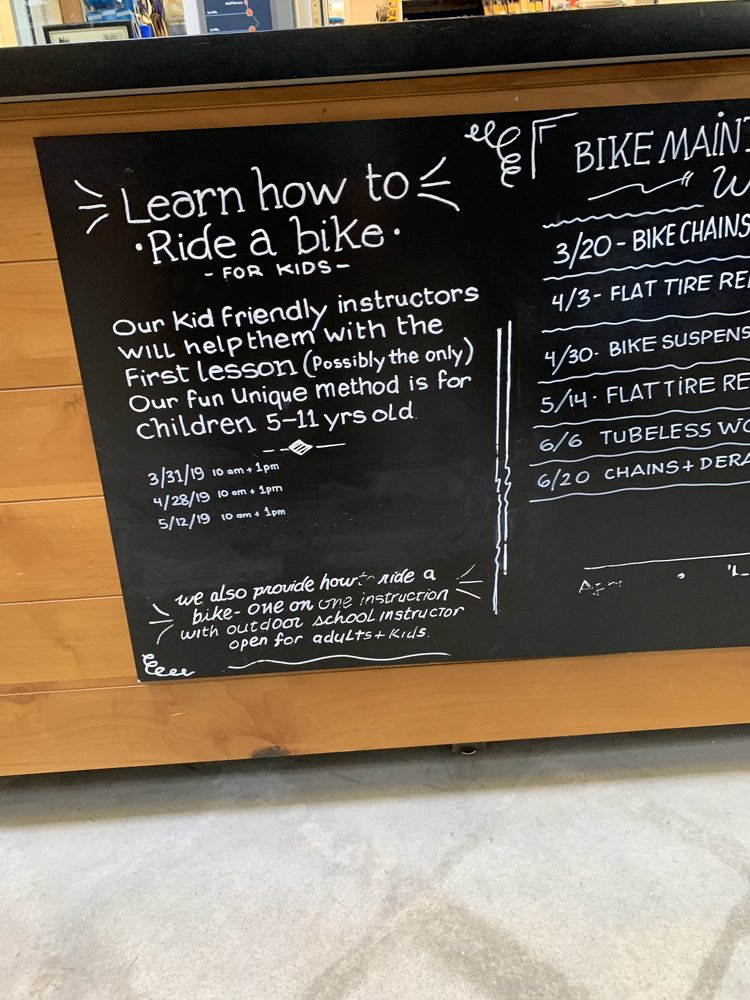 Learn how to
·Ride a bike·
- FOR KIDS -
Our Kid Friendly instructors
will help them with the
First lesson (Possibly the only)
Our fun Unique method is for
children 5-11 yrs old.
3/31/19 10 am + 1pm
4/28/19 10 am + 1pm
5/12/19 10 am + 1pm
we also provide how to ride a
bike- one on one instruction
with outdoor school instructor
open for adults + kids.
BIKE MAINT
W
3/20 - BIKE CHAINS
4/3 - FLAT TIRE RE
4/30 - BIKE SUSPENS
5/14 · FLAT TIRE RE
6/6 TUBELESS WO
6/20 CHAINS + DERA